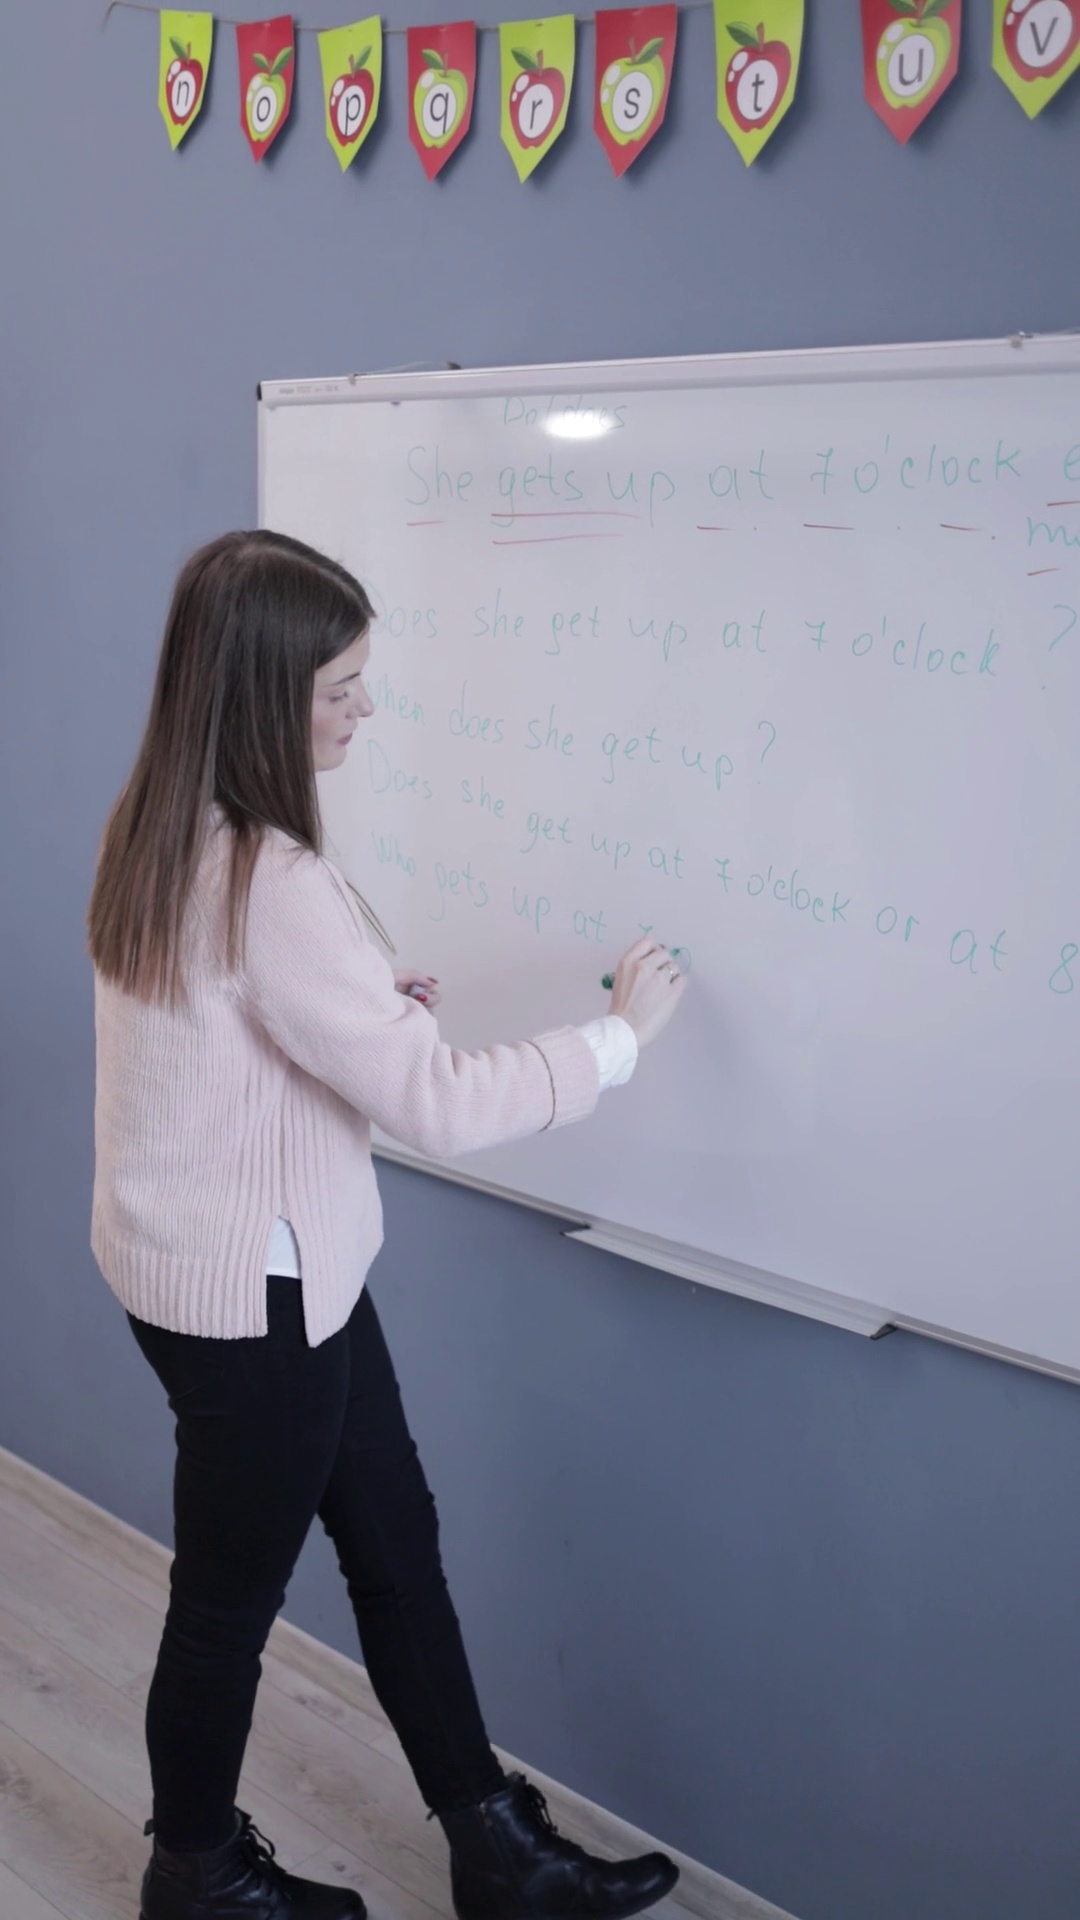 n o p q r s t u v
Do/does
She gets up at 7 o'clock e
m
Does she get up at 7 o'clock ?
When does she get up?
Does she get up at 7 o'clock or at 8
Who gets up at 7 o